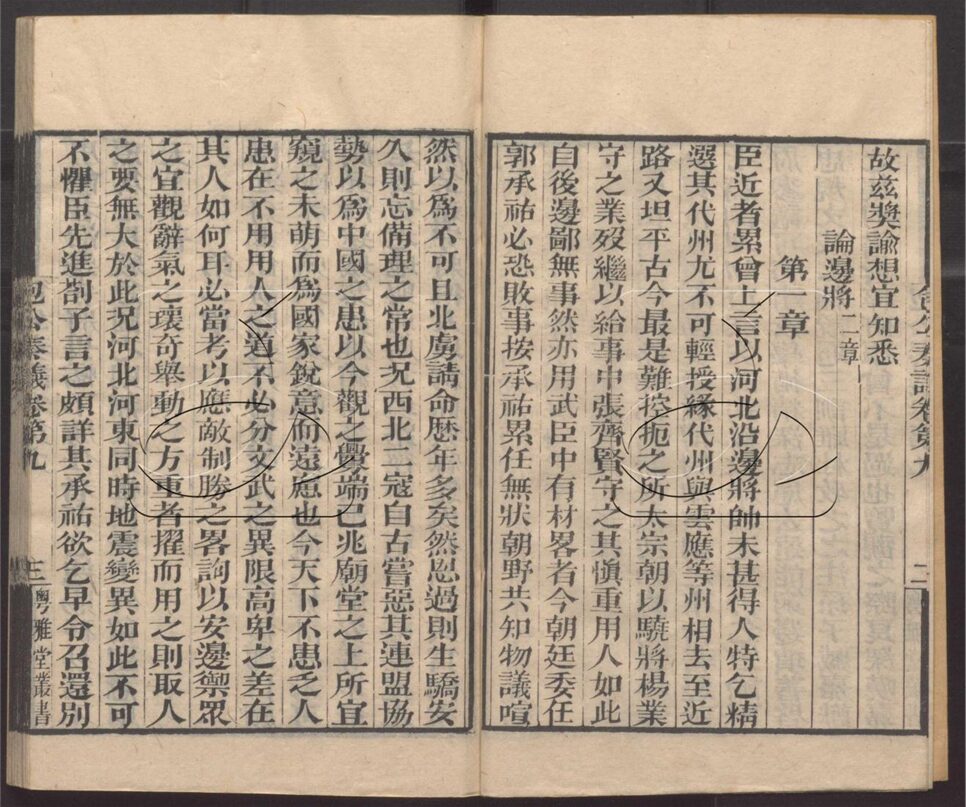 包公奏議卷第九
二
故兹獎諭想宜知悉
論邊將二章
第一章
臣近者累曾上言以河北沿邊將帥未甚得人特乞精
選其代州尤不可輕授緣代州與雲應等州相去至近
路又坦平古今最是難控扼之所太宗朝以驍將楊業
守之業歿繼以給事中張齊賢守之其愼重用人如此
自後邊鄙無事然亦用武臣中有材畧者今朝廷委任
郭承祐必恐敗事按承祐累任無狀朝野共知物議喧
然以爲不可且北虜請命歴年多矣然恩過則生驕安
久則忘備理之常也况西北二寇自古嘗惡其連盟協
勢以爲中國之患以今觀之釁端已兆廟堂之上所宜
窺之未萌而爲國家銳意而遠慮也今天下不患乏人
患在不用用人之道不必分文武之異限高卑之差在
其人如何耳必當考以應敵制勝之畧詢以安邊禦眾
之宜觀辭氣之瓌奇舉動之方重者擢而用之則取人
之要無大於此况河北河東同時地震變異如此不可
不懼臣先進劄子言之頗詳其承祐欲乞早令召還別
包公奏議卷第九
三
粵雅堂叢書